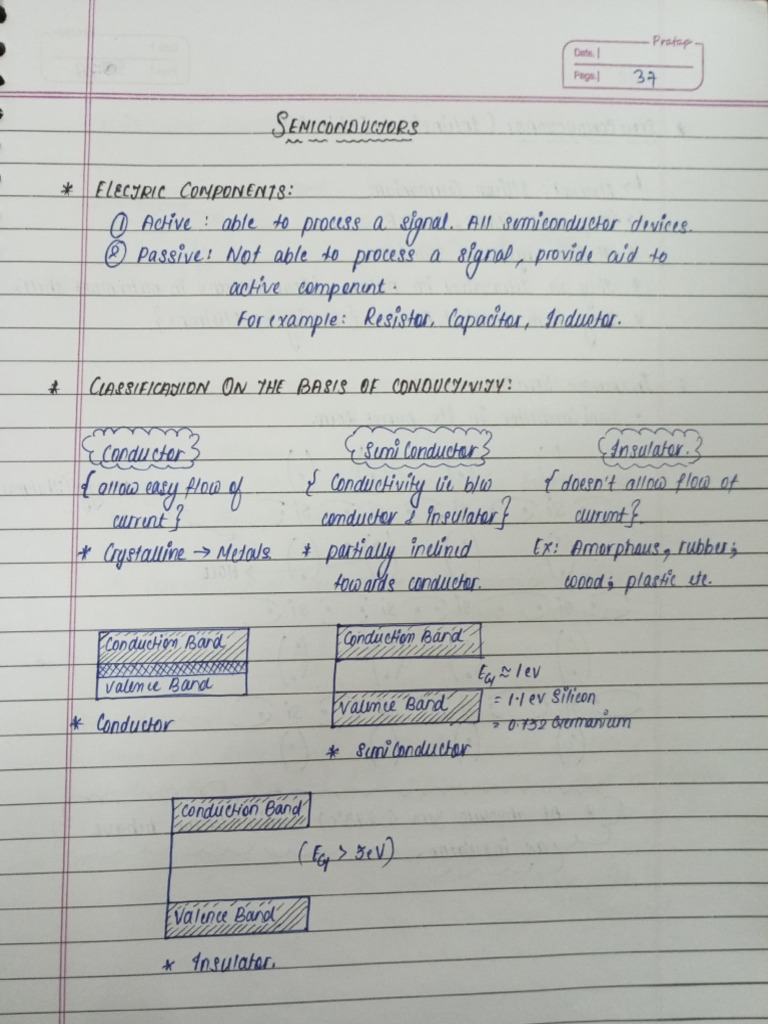 Pratap
Date.
Page. 37
SEMICONDUCTORS
* ELECTRIC COMPONENTS:
① Active : able to process a signal. All semiconductor devices.
② Passive : Not able to process a signal, provide aid to
active component.
For example: Resistor, Capacitor, Inductor.
* CLASSIFICATION ON THE BASIS OF CONDUCTIVITY:
Conductor
{ allow easy flow of
current }
* Crystalline → Metals
Semi Conductor
{ Conductivity lie b/w
conductor & insulator }
* partially inclined
towards conductor.
Insulator.
{ doesn't allow flow of
current }.
Ex: Amorphous, rubber,
wood, plastic etc.
Conduction Band
Valence Band
* Conductor
Conduction Band
EG ≈ 1 eV
Valence Band
= 1.1 eV Silicon
= 0.732 Germanium
* Semi Conductor
Conduction Band
(EG > 3eV)
Valence Band
* Insulator.